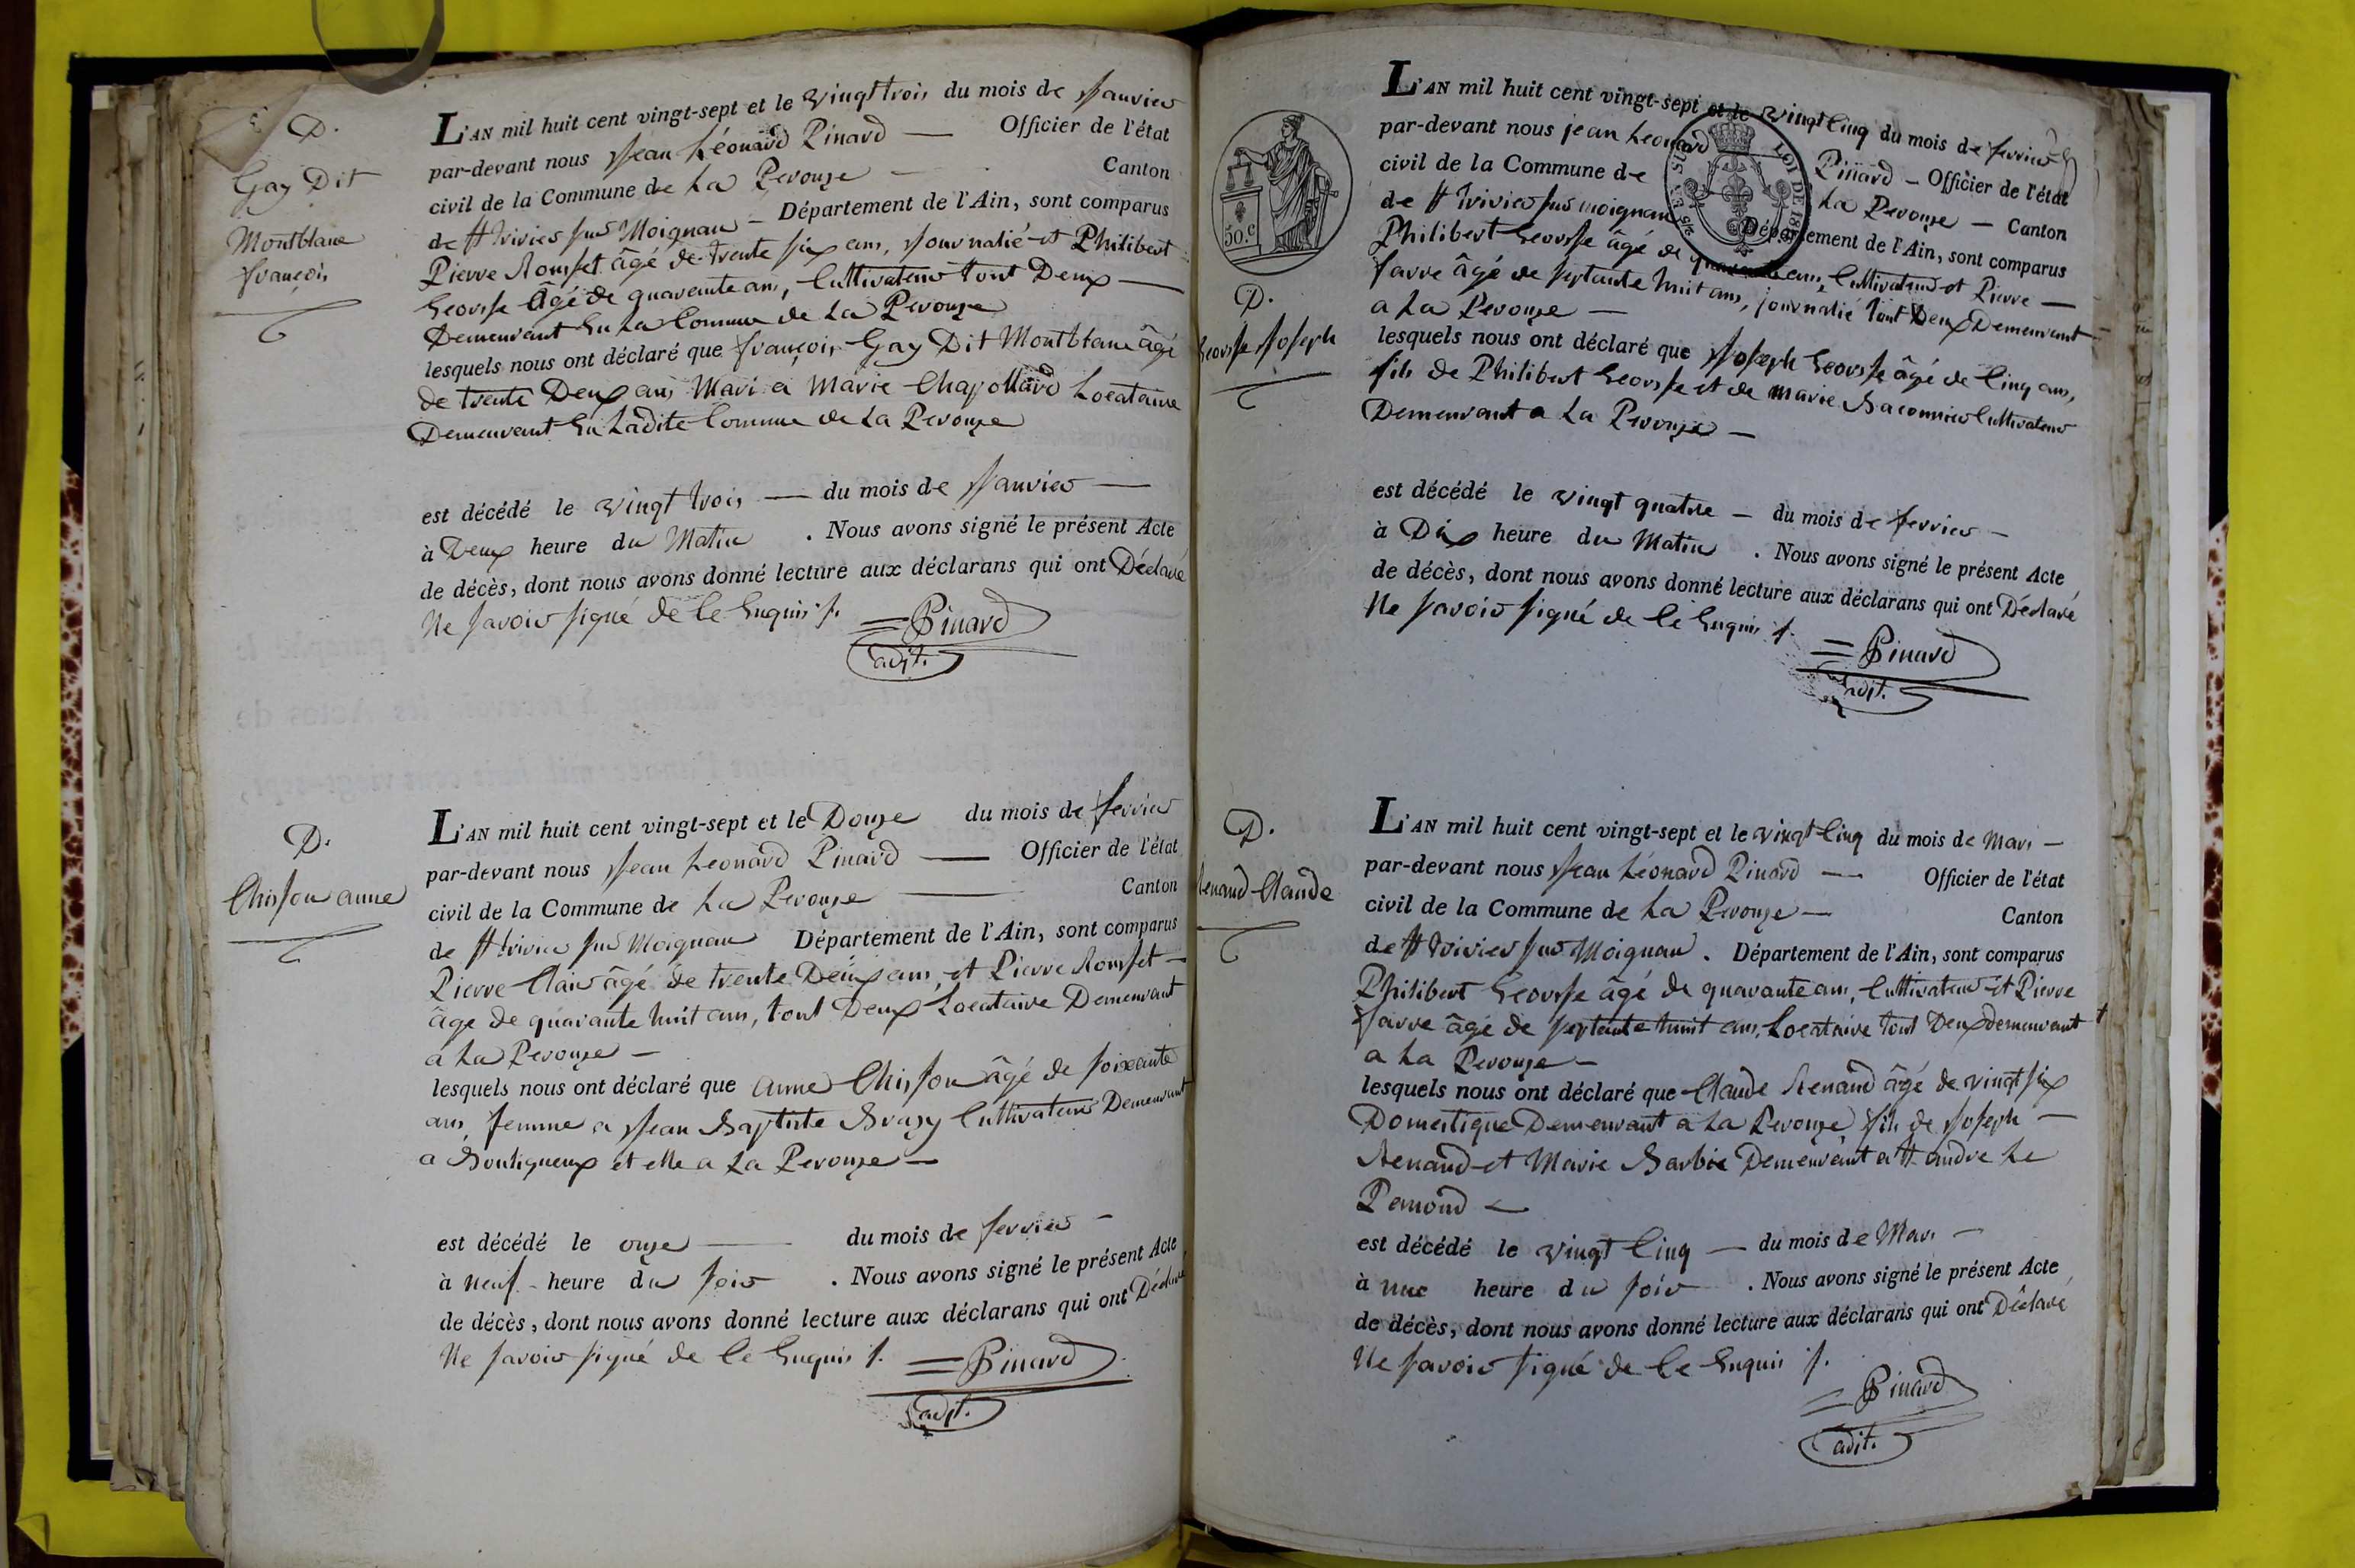 D.
Gay Dit
Montblanc
françois
L'AN mil huit cent vingt-sept et le vingt trois du mois de Janvier
par-devant nous Jean Léonard Pinard — Officier de l'état
civil de la Commune de La Perouze — Canton
de St trivier sur Moignan — Département de l'Ain, sont comparus
Pierre Rousset âgé de trente six ans, Journalié et Philibert
Georsse âgé de quarante ans, Cultivateur tout Deux —
Demeurant En La Commune de La Perouze
lesquels nous ont déclaré que françois Gay Dit Montblanc âgé
de trente Deux ans Mari a Marie Chapollard Locataire
Demeurant En Ladite Commune de La Perouze
est décédé le vingt trois — du mois de Janvier —
à Deux heure du Matin . Nous avons signé le présent Acte
de décès, dont nous avons donné lecture aux déclarans qui ont Déclaré
Ne savoir signé de Ce Enquis /.
= Pinard
adjt.
D.
Chisson anne
L'AN mil huit cent vingt-sept et le Douze du mois de fevrier
par-devant nous Jean Leonard Pinard — Officier de l'état
civil de la Commune de La Perouze — Canton
de St trivier sur Moignan Département de l'Ain, sont comparus
Pierre Clair âgé de trente Deux ans, et Pierre Rousset —
âge de quarante huit ans, tout Deux Locataire Demeurant
a La Perouze —
lesquels nous ont déclaré que anne Chisson âgé de soixante
ans femme a Jean Baptiste Brazy Cultivateur Demeurant
a Bouligneux et elle a La Perouze —
est décédé le onze — du mois de fevrier —
à neuf heure du soir . Nous avons signé le présent Acte
de décès, dont nous avons donné lecture aux déclarans qui ont Déclaré
Ne savoir signé de Ce Enquis /.
= Pinard
adjt.
50.c
LOI DE 18
D.
Georsse Joseph
L'AN mil huit cent vingt-sept et le vingt Cinq du mois de fevrier
par-devant nous jean Leonard Pinard — Officier de l'état
civil de la Commune de La Perouze — Canton
de St trivier sur moignan Département de l'Ain, sont comparus
Philibert Georsse âgé de quarante ans, Cultivateur et Pierre —
favre âgé de septante huit ans, journalié tout Deux Demeurant
a La Perouze —
lesquels nous ont déclaré que Joseph Georsse âgé de Cinq ans,
fils de Philibert Georsse et de marie Baconnier Cultivateur
Demeurant a La Perouze —
est décédé le vingt quatre — du mois de fevrier —
à Dix heure du Matin . Nous avons signé le présent Acte
de décès, dont nous avons donné lecture aux déclarans qui ont Déclaré
Ne savoir signé de Ce Enquis /.
= Pinard
adjt.
D.
Renand Claude
L'AN mil huit cent vingt-sept et le vingt Cinq du mois de Mars —
par-devant nous Jean Léonard Pinard — Officier de l'état
civil de la Commune de La Perouze — Canton
de St trivier sur Moignan . Département de l'Ain, sont comparus
Philibert Georsse âgé de quarante ans, Cultivateur et Pierre
favre âgé de septante huit ans, Locataire tout Deux demeurant
a La Perouze —
lesquels nous ont déclaré que Claude Renand âgé de vingt six
Domestique Demeurant a La Perouze, fils de Joseph —
Renand et Marie Barbié Demeurant a St andre Le
Penoud —
est décédé le vingt Cinq — du mois de Mars —
à une heure du soir . Nous avons signé le présent Acte
de décès, dont nous avons donné lecture aux déclarans qui ont Déclaré
Ne savoir signé de Ce Enquis /.
= Pinard
adjt.